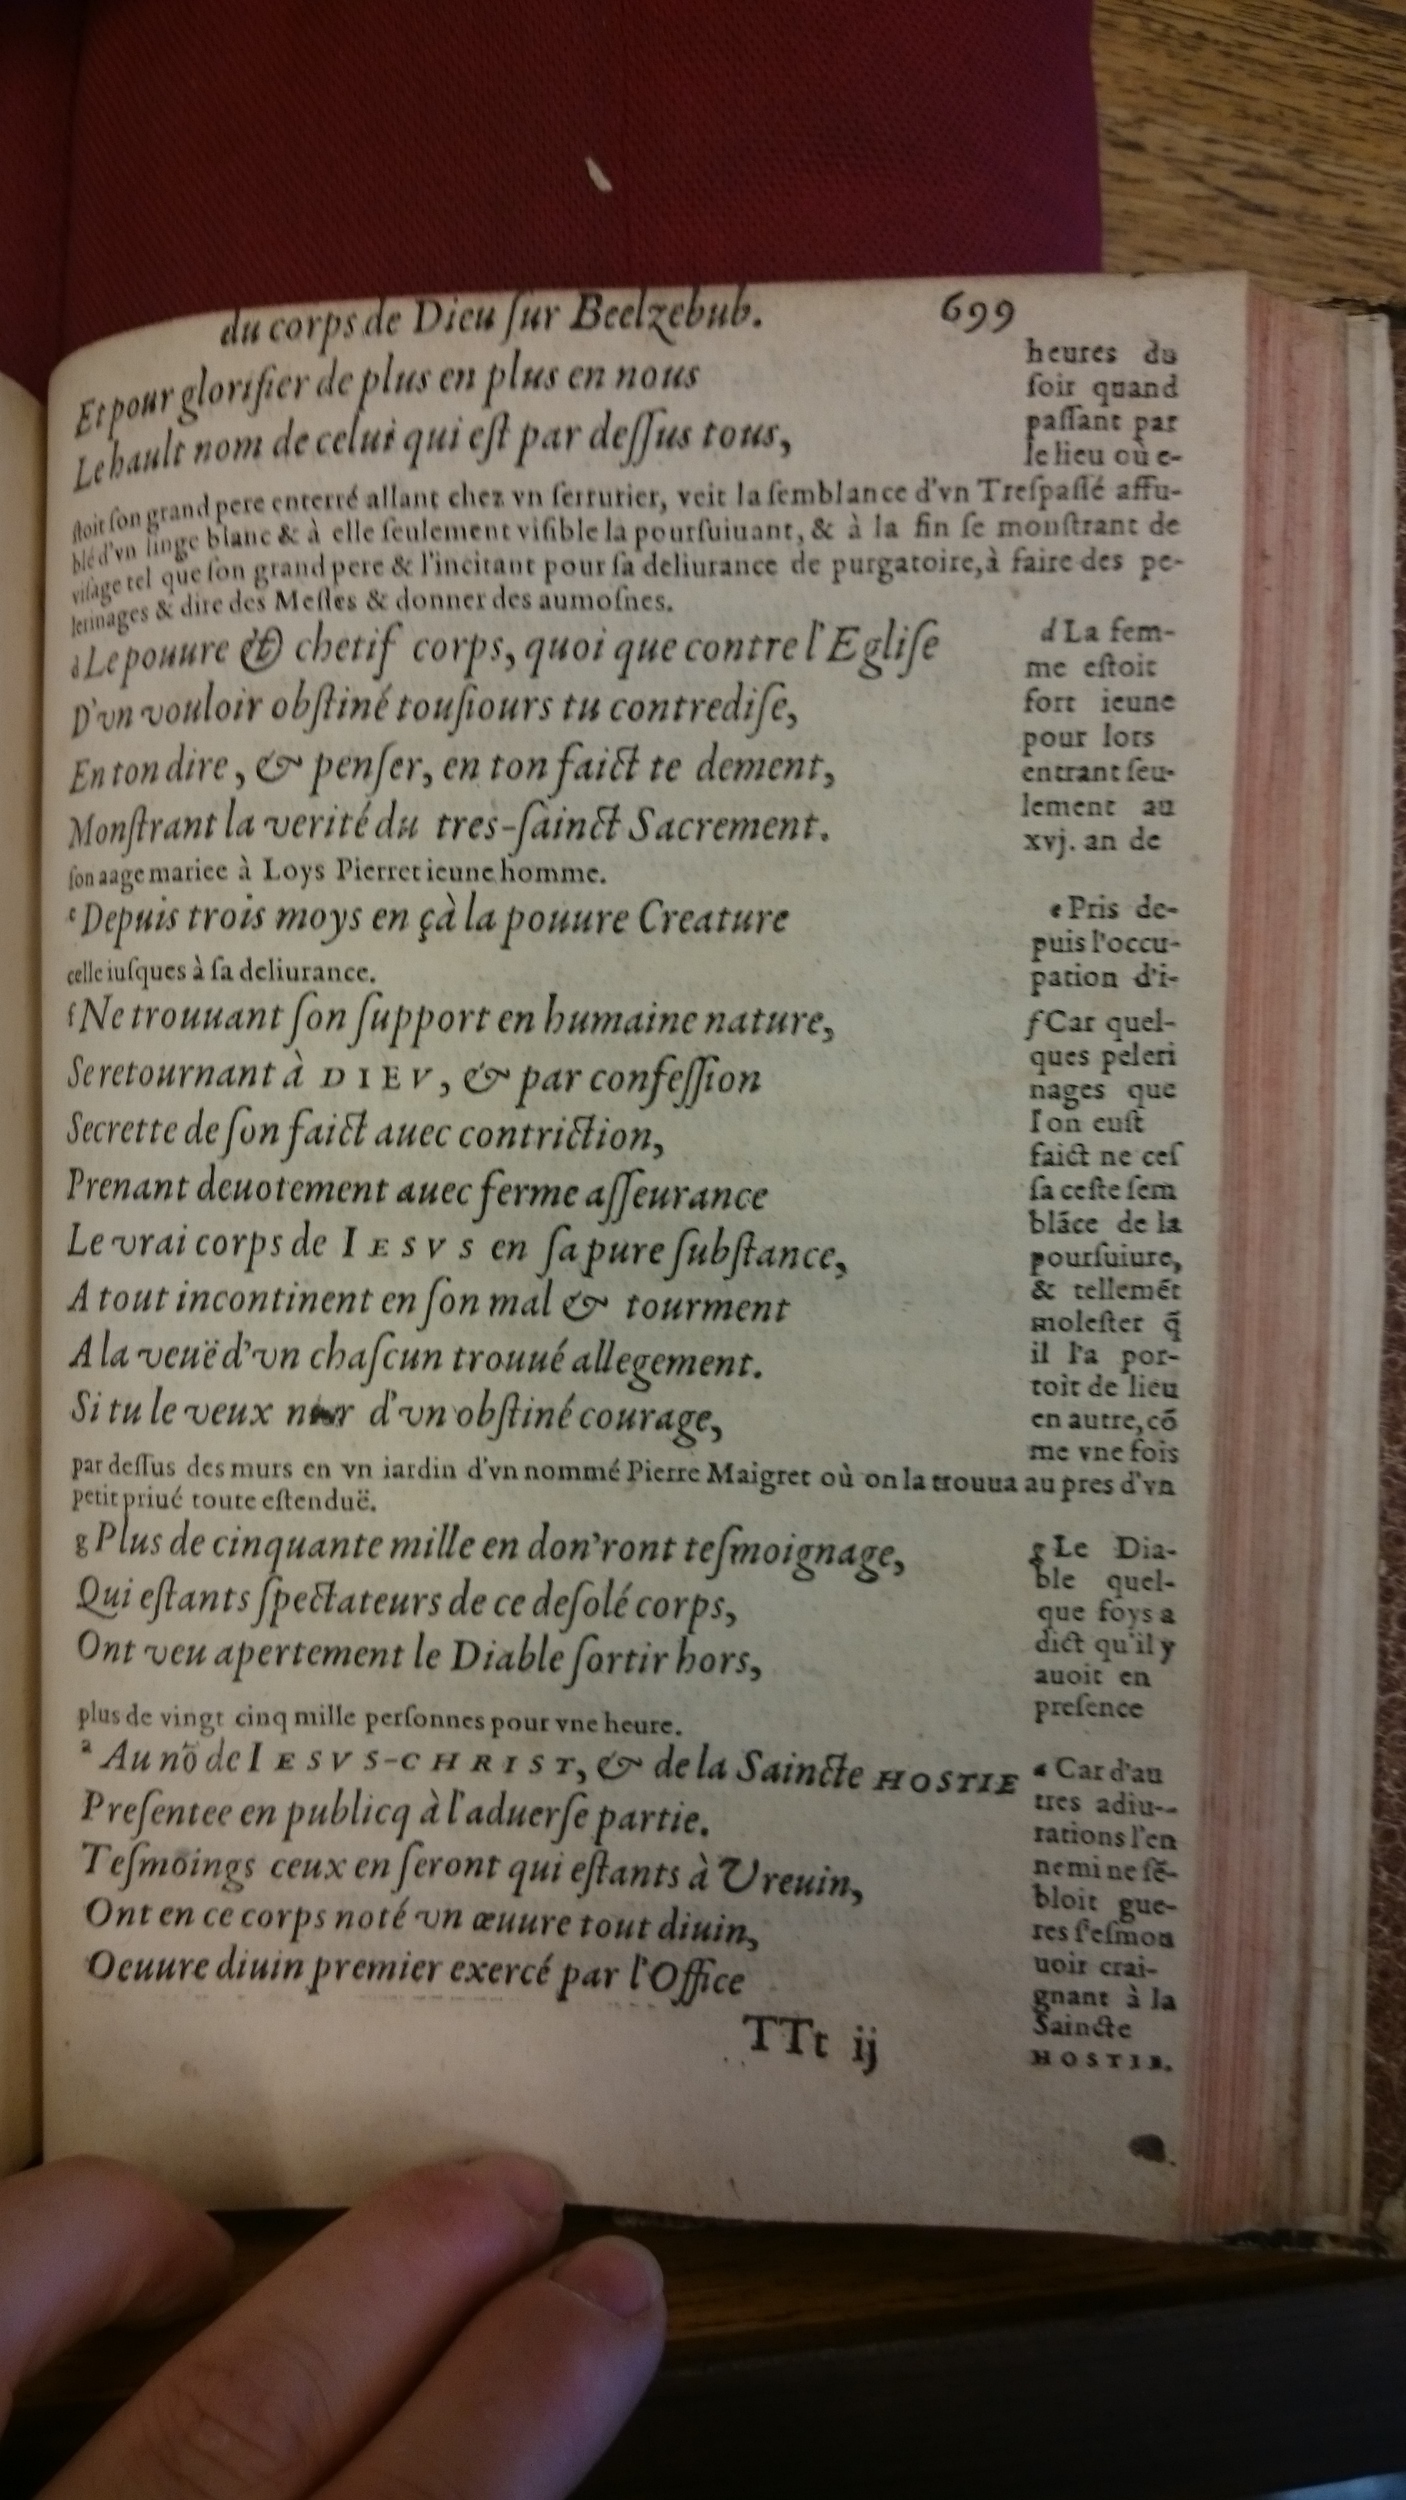 du corps de Dieu ſur Beelzebub. 699
Et pour glorifier de plus en plus en nous
Le hault nom de celui qui eſt par deſſus tous,
heures du
ſoir quand
paſſant par
le lieu où e-
ſtoit ſon grand pere enterré allant chez vn ſerrurier, veit la ſemblance d'vn Treſpaſſé affu-
blé d'vn linge blanc & à elle ſeulement viſible la pourſuiuant, & à la fin ſe monſtrant de
viſage tel que ſon grand pere & l'incitant pour ſa deliurance de purgatoire, à faire des pe-
lerinages & dire des Meſſes & donner des aumoſnes.
d Le pouure & chetif corps, quoi que contre l'Egliſe
D'vn vouloir obſtiné touſiours tu contrediſe,
En ton dire, & penſer, en ton faict te dement,
Monſtrant la verité du tres-ſainct Sacrement.
d La fem-
me eſtoit
fort ieune
pour lors
entrant ſeu-
lement au
xvj. an de
ſon aage mariee à Loys Pierret ieune homme.
e Depuis trois moys en çà la pouure Creature
e Pris de-
puis l'occu-
pation d'i-
celle iuſques à ſa deliurance.
f Ne trouuant ſon ſupport en humaine nature,
Se retournant à DIEV, & par confeſſion
Secrette de ſon faict auec contriction,
Prenant deuotement auec ferme aſſeurance
Le vrai corps de IESVS en ſa pure ſubſtance,
A tout incontinent en ſon mal & tourment
A la veuë d'vn chaſcun trouué allegement.
Si tu le veux nier d'vn obſtiné courage,
f Car quel-
ques peleri
nages que
l'on euſt
faict ne ceſ
ſa ceſte ſem
blāce de la
pourſuiure,
& tellemēt
moleſter q̄
il l'a por-
toit de lieu
en autre, cō
me vne fois
par deſſus des murs en vn iardin d'vn nommé Pierre Maigret où on la trouua au pres d'vn
petit priué toute eſtenduë.
g Plus de cinquante mille en don'ront teſmoignage,
Qui eſtants ſpectateurs de ce deſolé corps,
Ont veu apertement le Diable ſortir hors,
g Le Dia-
ble quel-
que foys a
dict qu'il y
auoit en
preſence
plus de vingt cinq mille perſonnes pour vne heure.
a Au nō de IESVS-CHRIST, & de la Saincte HOSTIE
Preſentee en publicq à l'aduerſe partie.
Teſmoings ceux en ſeront qui eſtants à Vreuin,
Ont en ce corps noté vn œuure tout diuin,
Oeuure diuin premier exercé par l'Office
a Car d'au
tres adiu-
rations l'en
nemi ne ſē-
bloit gue-
res ſ'eſmou
uoir crai-
gnant à la
Saincte
HOSTIE.
TTt ij